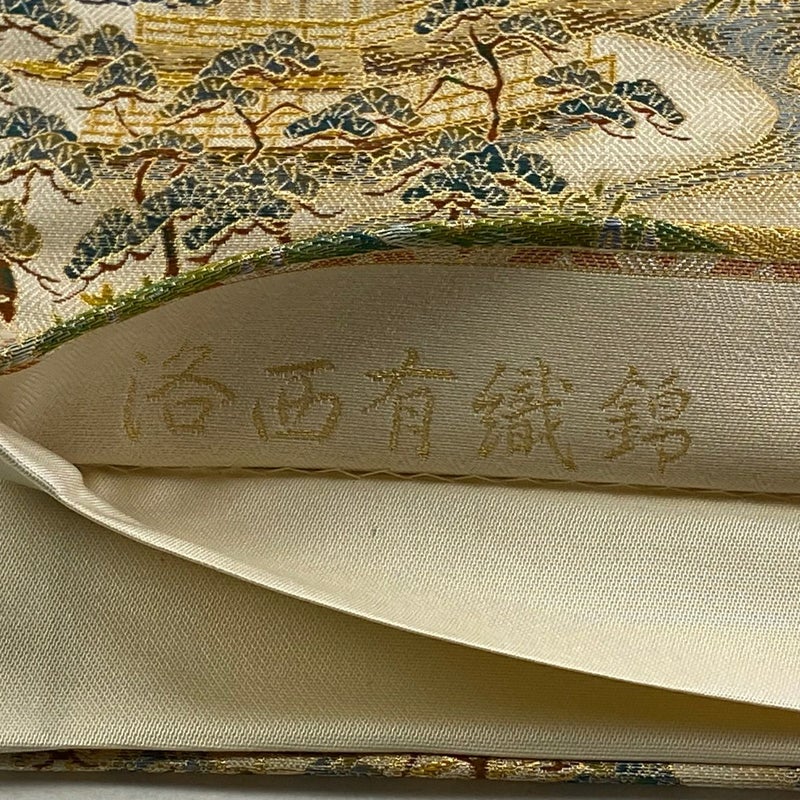 洛西有織錦